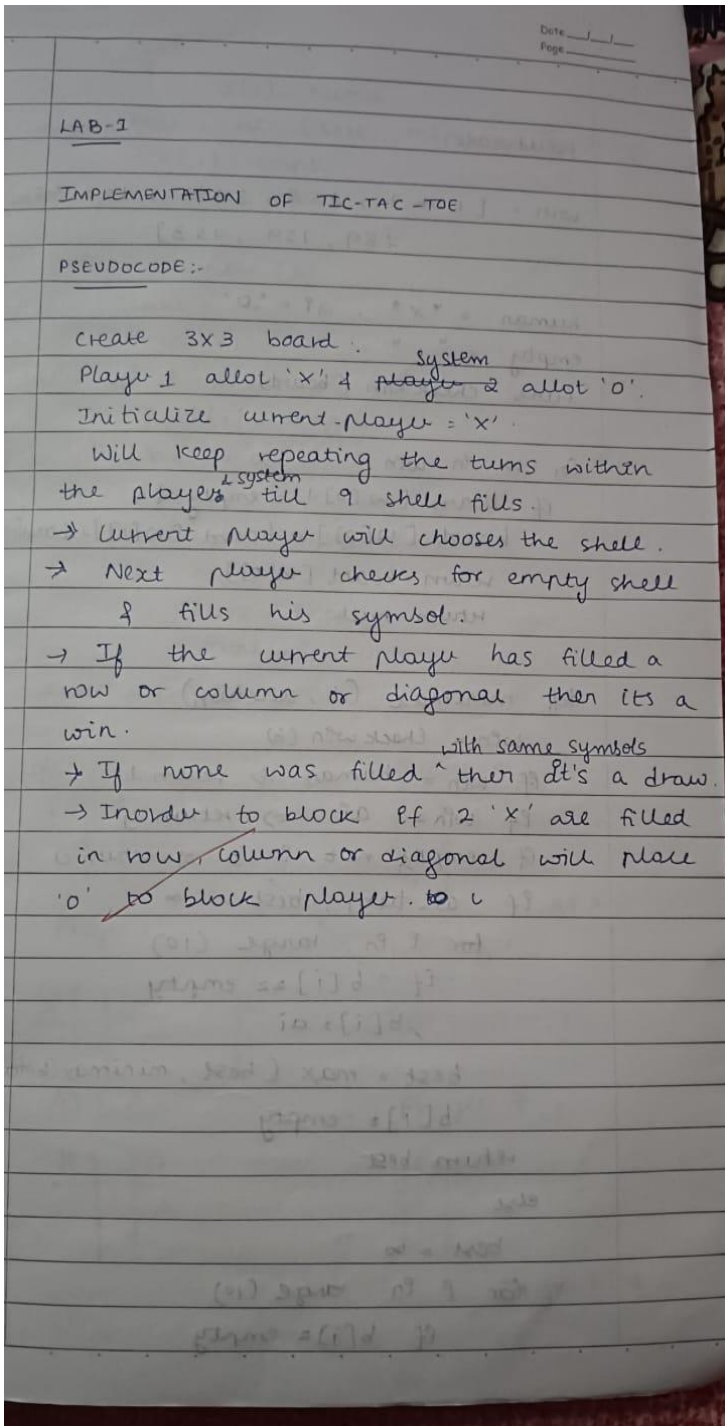 Date __/__/__
Page ______
LAB-1
IMPLEMENTATION OF TIC-TAC-TOE
PSEUDOCODE:-
Create 3x3 board.
system
Player 1 allot 'X' & player 2 allot 'O'.
Initialize current-player = 'X'.
Will keep repeating the turns within
& system
the players till 9 shell fills.
→ Current player will chooses the shell.
→ Next player checks for empty shell
& fills his symbol.
→ If the current player has filled a
row or column or diagonal then its a
win.
with same symbols
→ If none was filled ^ then It's a draw.
→ Inorder to block if 2 'X' are filled
in row, column or diagonal will place
'O' to block player. to